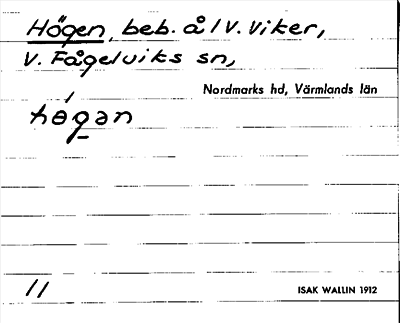 Högen, beb. å l V. Viker,
V. Fågelviks sn,
Nordmarks hd, Värmlands län
høgan
11
ISAK WALLIN 1912